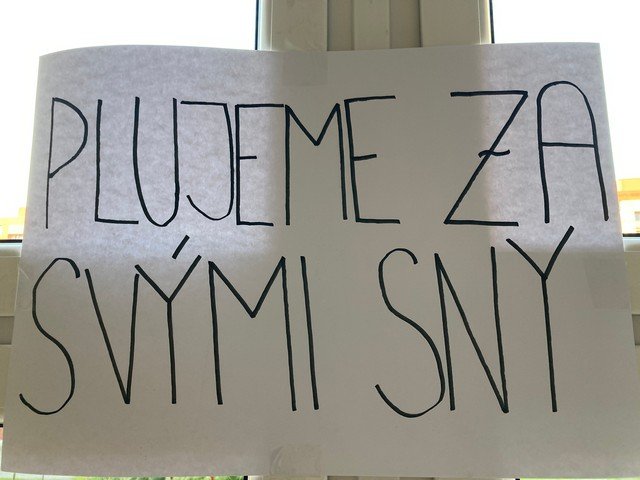 PLUJEME ZA
SVÝMI SNY